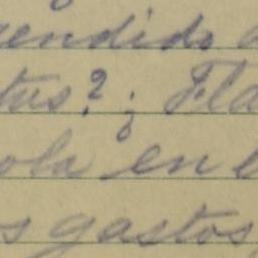 endido
tus? ; Fla
ola en
s gastos